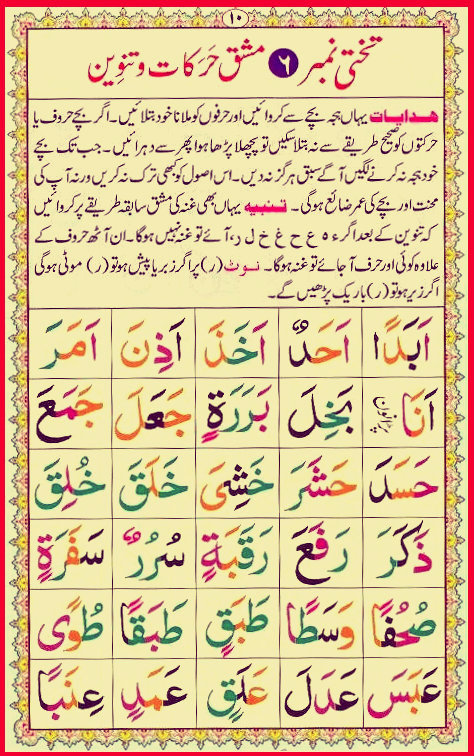 ۱۰
تختی نمبر ۶ مشق حرکات و تنوین
ھدایات یہاں ہجہ بچے سے کروائیں اور حرفوں کو ملانا خود بتلائیں۔ اگر بچے حروف یا
حرکتوں کو صحیح طریقے سے نہ بتلا سکیں تو پچھلا پڑھا ہوا پھر سے دہرائیں۔ جب تک بچے
خود ہجہ نہ کرنے لگیں آگے سبق ہرگز نہ دیں۔ اس اصول کو کبھی ترک نہ کریں ورنہ آپ کی
محنت اور بچے کی عمر ضائع ہوگی۔ تنبیہ یہاں بھی غنہ کی مشق سابقہ طریقے پر کروائیں
کہ تنوین کے بعد اگر ء ہ ع ح غ خ ل ر، آئے تو غنہ نہیں ہوگا۔ ان آٹھ حروف کے
علاوہ کوئی اور حرف آ جائے تو غنہ ہوگا۔ نوٹ (ر) پر اگر زبر یا پیش ہو تو (ر) موٹی ہوگی
اگر زیر ہو تو (ر) باریک پڑھیں گے۔
اَبَدًا اَحَدٌ اَخَذَ اَذِنَ اَمَرَ
اَنَا بَخِلَ بَرَرَةٍ جَعَلَ جَمَعَ
حَسَدَ حَشَرَ خَشِیَ خَلَقَ خُلِقَ
ذَكَرَ رَفَعَ رَقَبَةٍ سُرُرٌ سَفَرَةٍ
صُحُفًا وَسَطًا طَبَقٍ طَبَقًا طُوًى
عَبَسَ عَدَلَ عَلَقٍ عَمَدٍ عِنَبًا